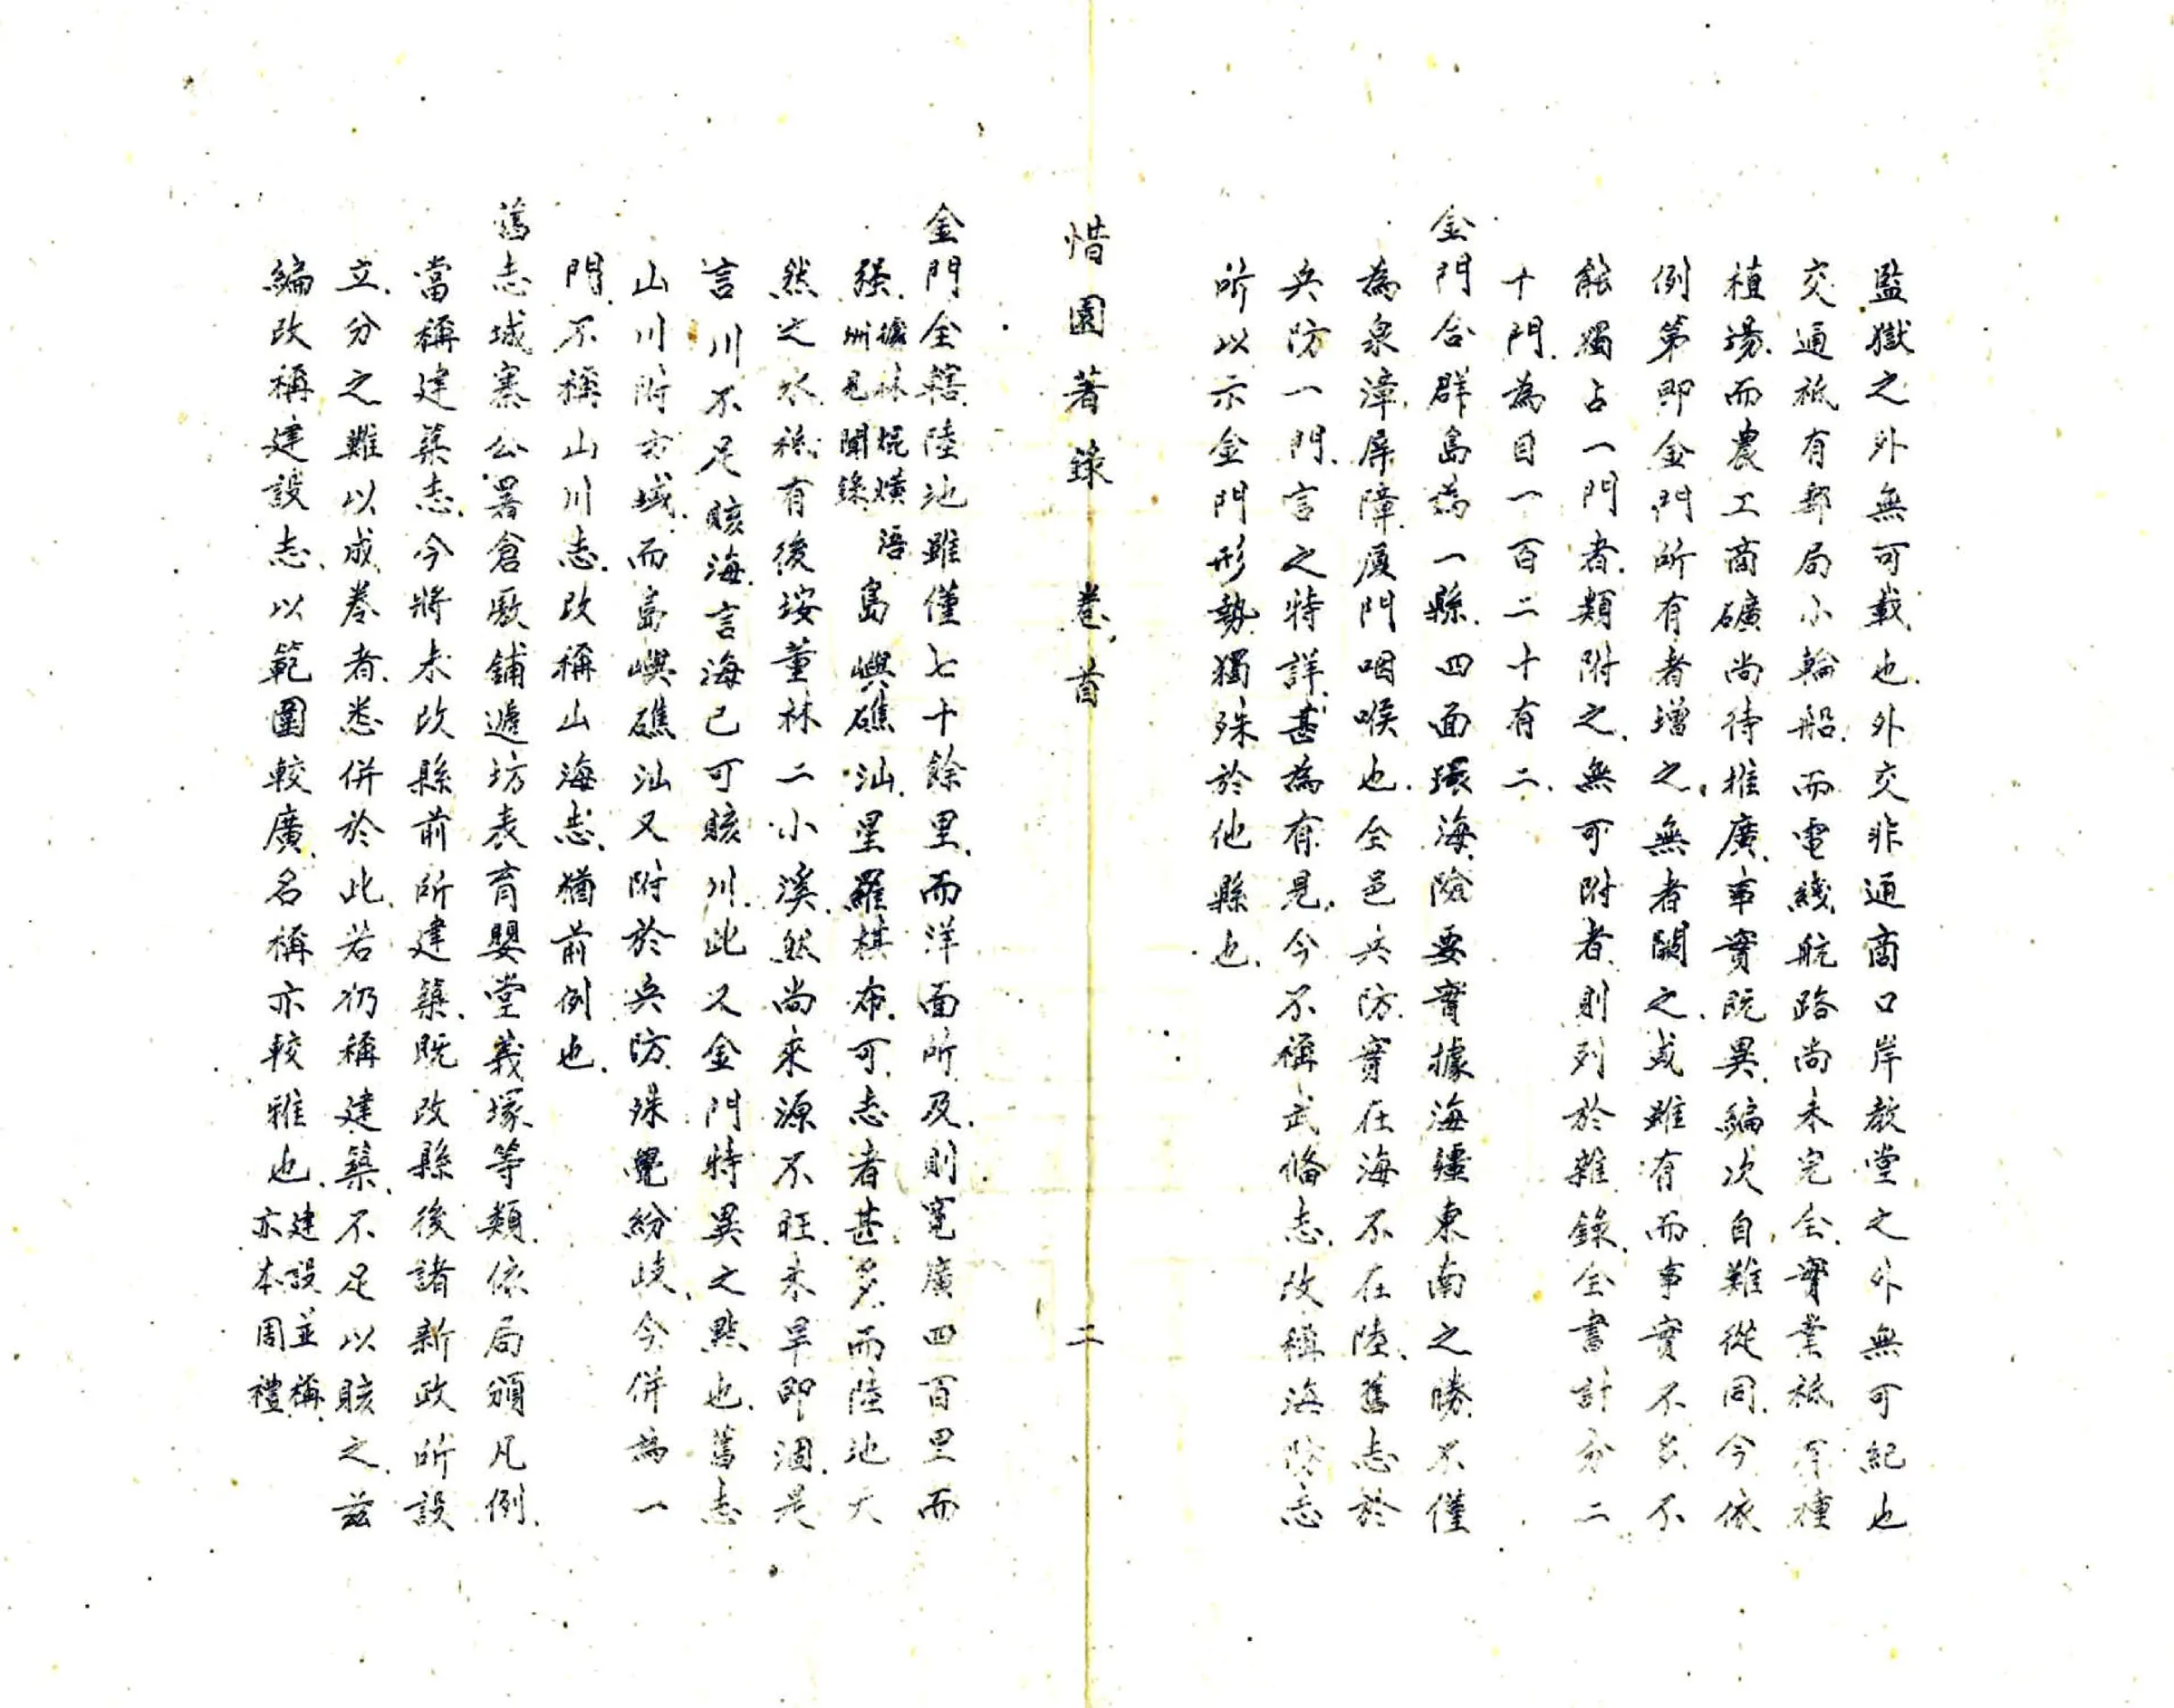 監獄之外無可載也.外交非通商口岸教堂之外無可紀也
交通祗有郵局小輪船.而電綫航路尚未完全.實業祗有種
植場.而農工商礦尚待推廣.事實既異.編次自難從同.今依
例第即金門所有者增之.無者闕之.或雖有而事實不多不
能獨占一門者.類附之.無可附者.則列於雜錄.全書計分二
十門.為目一百二十有二.
金門合群島為一縣.四面環海.險要實據海疆東南之勝.不僅
為泉漳屏障.廈門咽喉也.全邑兵防.實在海不在陸.舊志於
兵防一門.言之特詳.甚為有見.今不稱武備志.改稱海防志
所以示金門形勢.獨殊於他縣也.
惜園著錄 卷首 二
金門全轄.陸地雖僅七十餘里.而洋面所及.則寬廣四百里而
强.據林焜熿浯
洲見聞錄
島嶼礁汕.星羅棋布.可志者甚多.而陸地天
然之水.祗有後垵董林二小溪.然尚來源不旺.未旱即涸.是
言川不足賅海.言海已可賅川.此又金門特異之點也.舊志
山川附方域.而島嶼礁汕又附於兵防.殊覺紛歧.今併為一
門.不稱山川志.改稱山海志.猶前例也.
舊志城寨公署倉廒鋪遞坊表育嬰堂義塚等類.依局頒凡例.
當稱建築志.今將未改縣前所建築.既改縣後諸新政所設
立.分之難以成卷者.悉併於此.若仍稱建築.不足以賅之.茲
編改稱建設志.以範圍較廣.名稱亦較雅也.
建設並稱.
亦本周禮